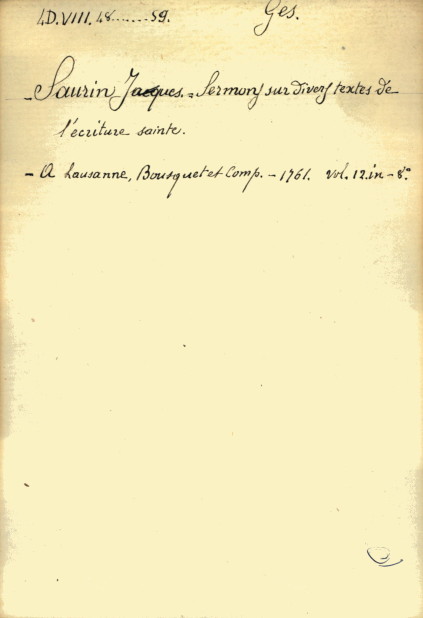 4.D.VIII.48.......59. Ges.
- Saurin Jacques. = Sermons sur divers textes de
l'écriture sainte.
- A Lausanne, Bousquet et Comp. - 1761. vol. 12. in - 8.°